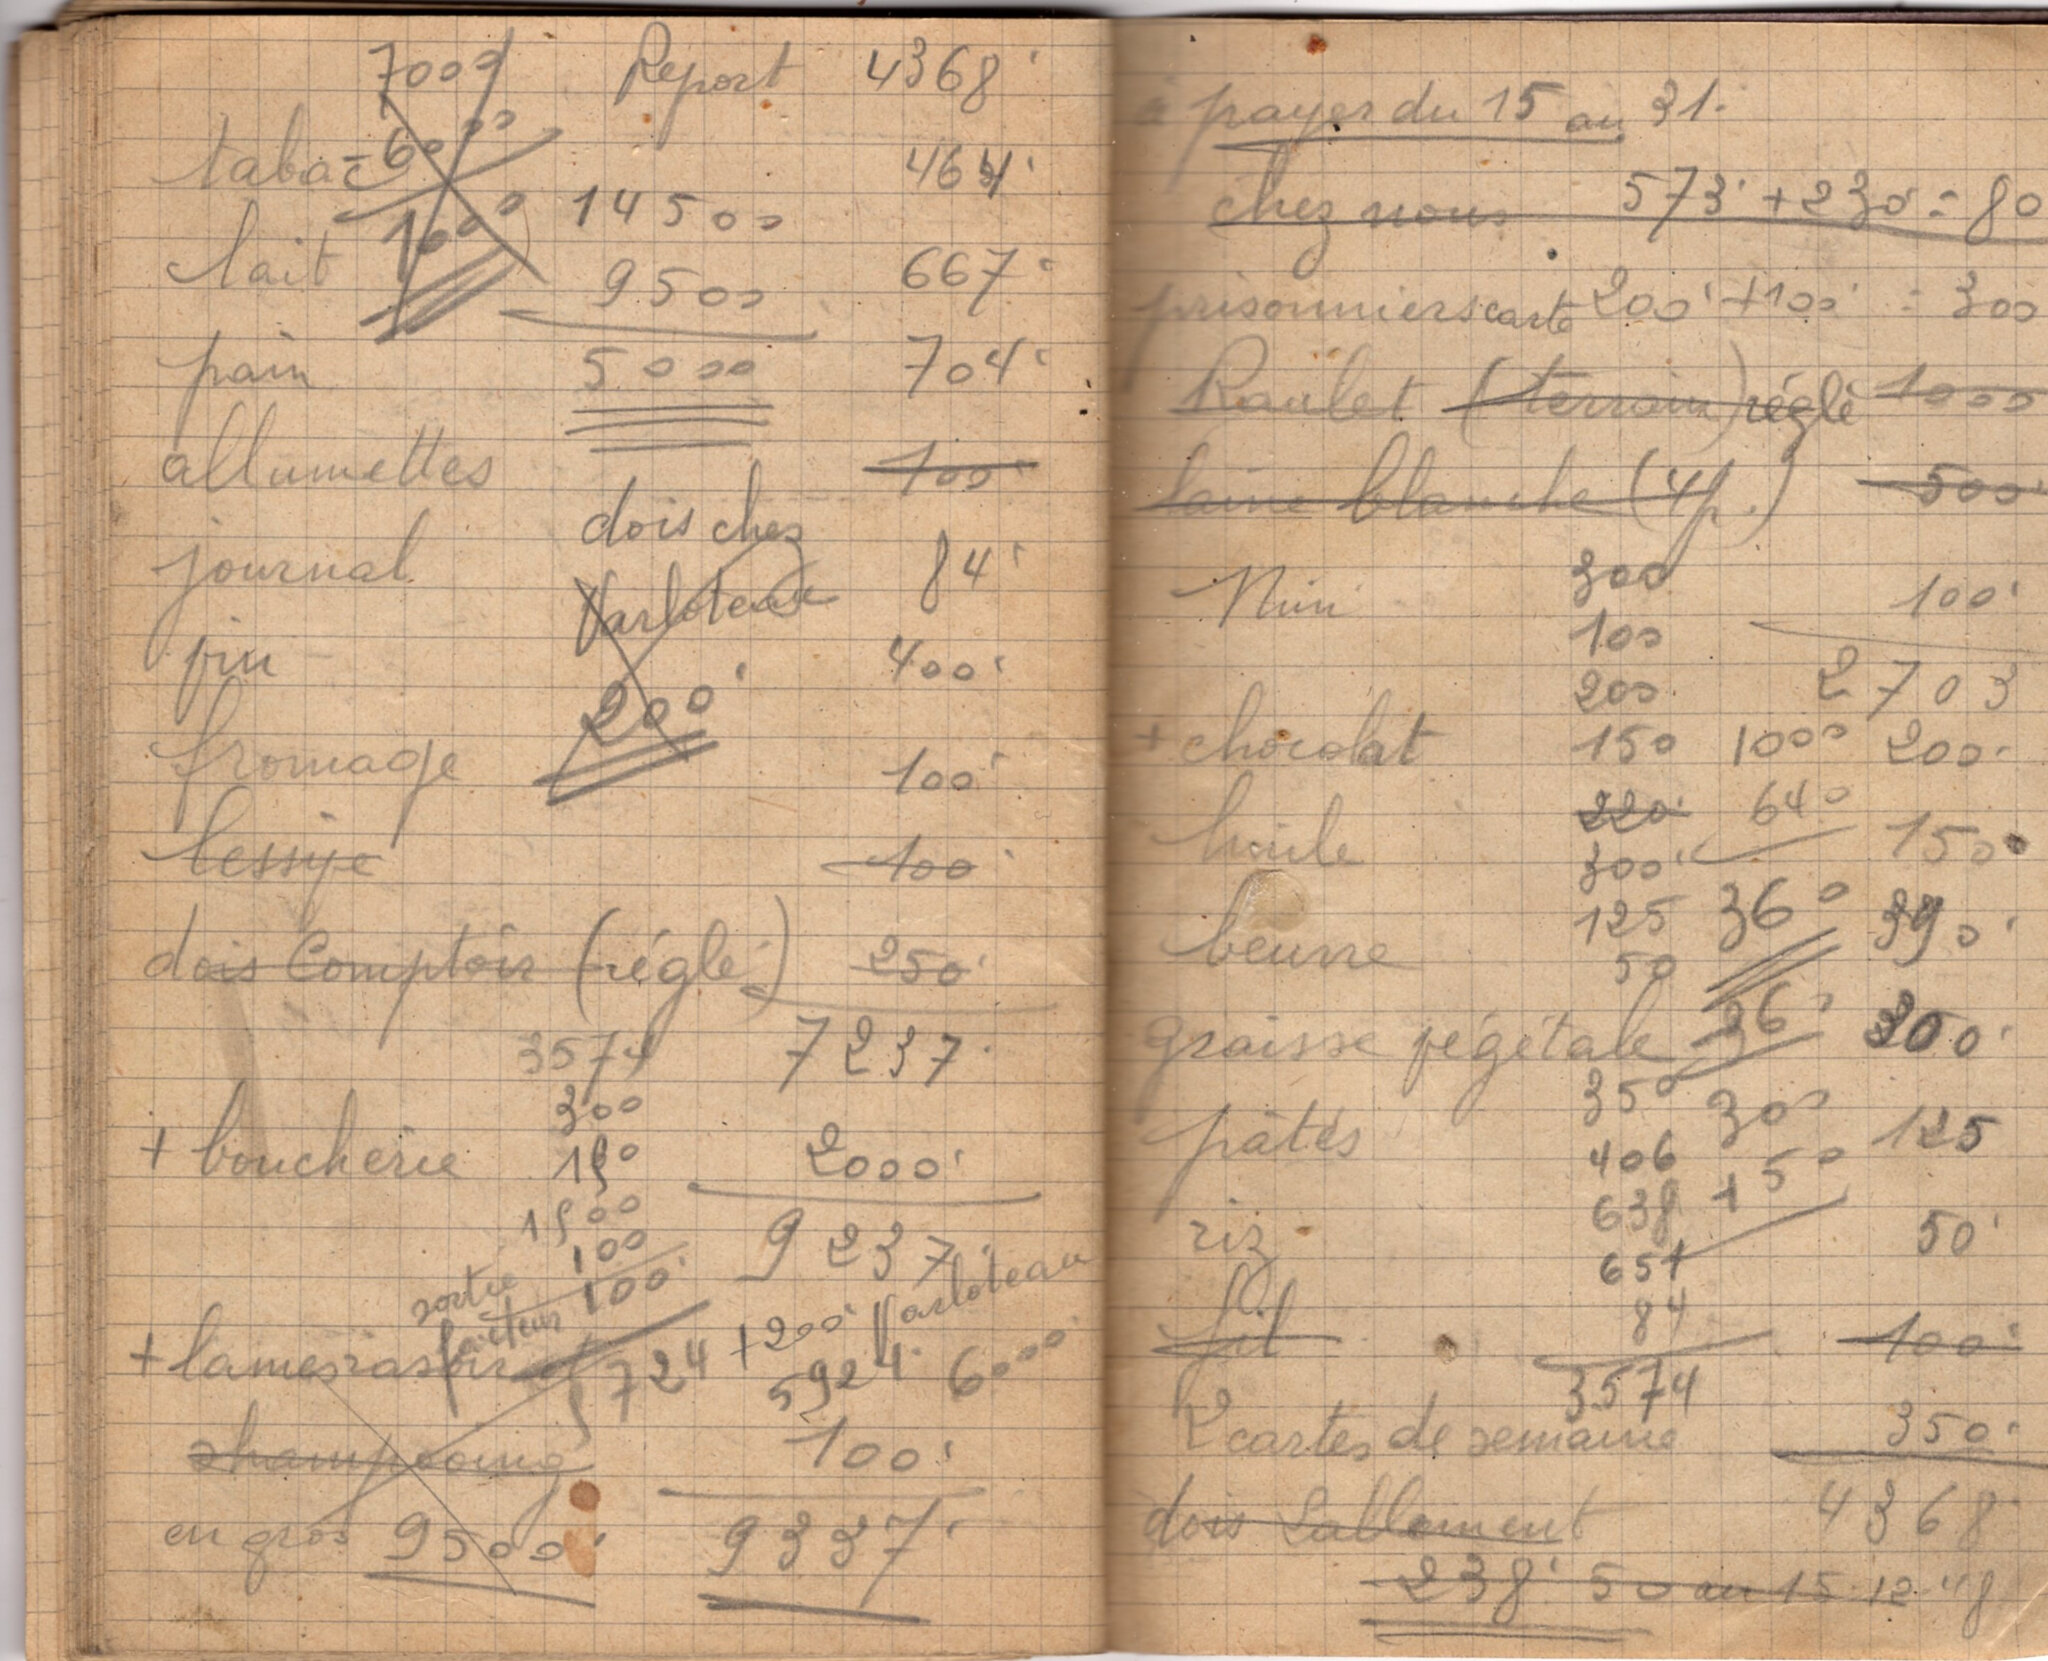 7000 Report 4368
tabac - 6000 464
lait 1000 14500
9500 667
pain 5000 704
allumettes 100
dois chez
journal 84
Varloteau
vin 400
200
fromage 100
lessive 100
dois Comptoir (réglé) 250
3574 7237
300
+ boucherie 150 2000
1500
100 9237
sortie
facteur 100 +200 Varloteau
+ lames rasoir 5724 5924 6000
shampooing 100
en gros 9500 9337
à payer du 15 au 31.
chez nous 573 + 230 = 80
prisonniers carte 200 + 100 = 300
Raulet (terrain) réglé 1000
laine blanche (4p.) 500
300
Nini 100
100
200 2703
+ chocolat 150 1000 200
220 640
huile 300 150
125 360 390
beurre 50
graisse végétale 360 300
350 300
pâtes 406 +50 125
638
riz 651 50
84
fil 100
3574
2 cartes de semaine 350
dois Lallement 4368
238 50 au 15.12.48